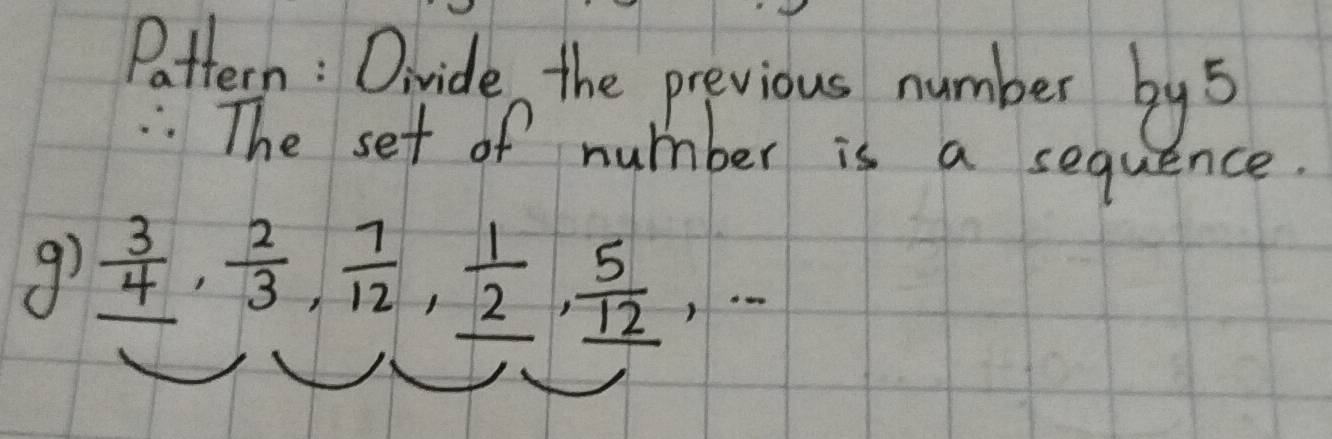 Pattern: Divide the previous number by 5
∴ The set of number is a sequence.
g) 3/4, 2/3, 7/12, 1/2, 5/12, ...